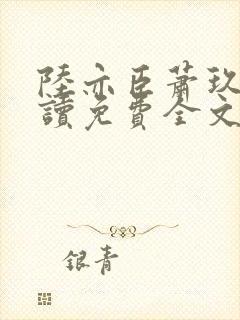 陸亦臣蕭玖
讀免費全文
银青